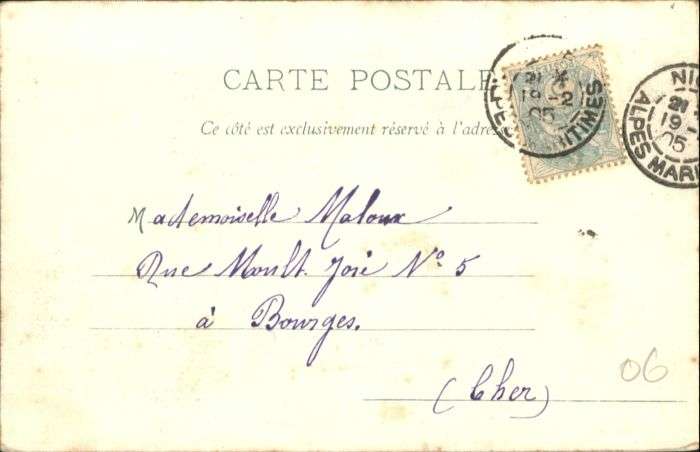 CARTE POSTALE
Ce côté est exclusivement réservé à l'adres
21
19-2
05
ALPES MARITIMES
NI
21
19
05
ALPES MARI
Mademoiselle Maloux
Rue Moult. Joie Nº 5
à Bourges.
(Cher)
06